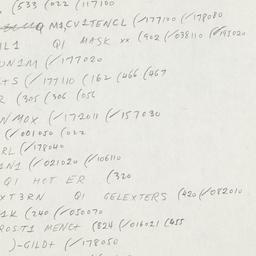 (533 (022 (117100
M1,CV1TENCL (/177100 (/178080
1L1 Q1 MASK xx (902 (/038110 (/193020
UN1M (/177020
+S (/177110 (162 (466 (467
R (305 (306 (056
NMOX (/172011 (/157030
(/001050 (022
RL (/178040
1N1 (/021020 (/106110
Q1 HOT ER (320
XT3RN Q1 GELEXTERS (420 (/082010
1K (240 (/050070
ROST1 MENC+ (824 (/016021 (455
)-GILD+ (/178050